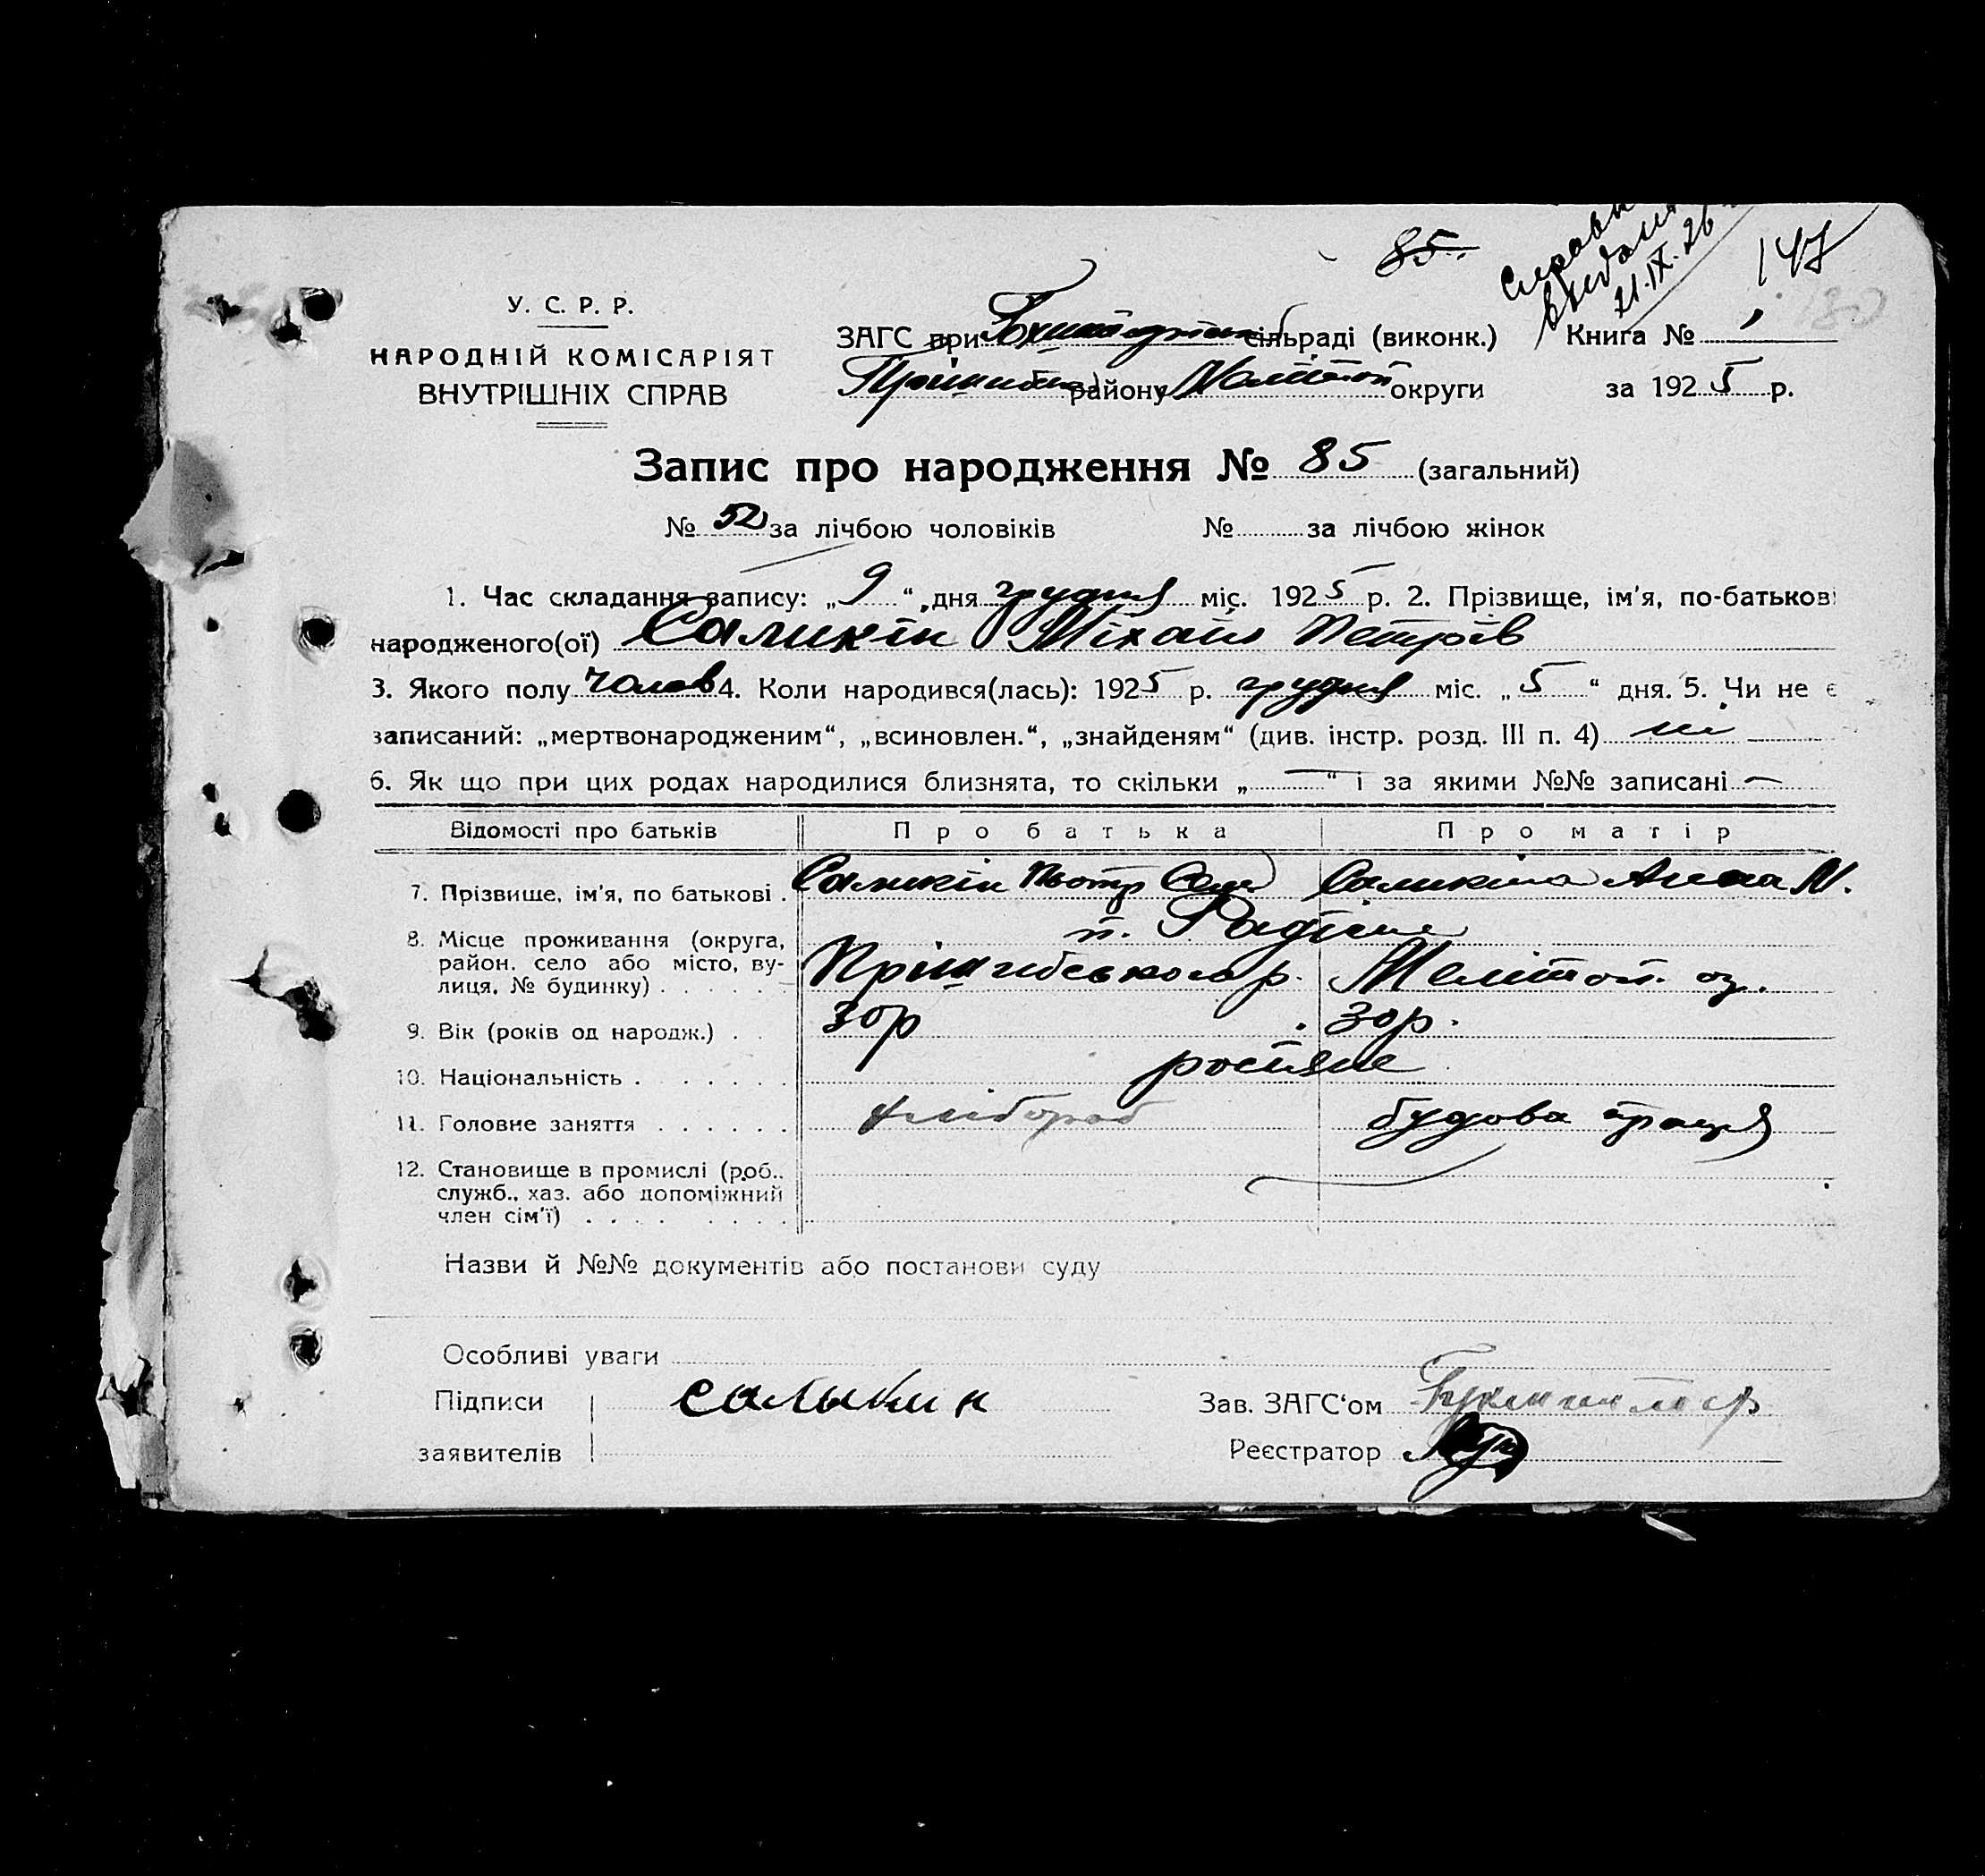 85.
Справка
видана
21.IX.26
147
180
У. С. Р. Р.
НАРОДНІЙ КОМІСАРІЯТ
ВНУТРІШНІХ СПРАВ
ЗАГС при сільраді (виконк.) Книга № 1
району Меліtоп округи за 1925 р.
Запис про народження № 85 (загальний)
№ 52 за лічбою чоловіків № за лічбою жінок
1. Час складання запису: „9“ дня грудня міс. 1925 р. 2. Прізвище, ім'я, по-батькові
народженого(ої) Саликін Міхайл Петрів
3. Якого полу чолов 4. Коли народився(лась): 1925 р. грудня міс. „5“ дня. 5. Чи не є
записаний: „мертвонародженим“, „всиновлен.“, „знайденям“ (див. інстр. розд. III п. 4) ні
6. Як що при цих родах народилися близнята, то скільки „—“ і за якими №№ записані —
Відомості про батьків Про батька Про матір
7. Прізвище, ім'я, по батькові . Саликін Пьотр Саликіна Анна М.
8. Місце проживання (округа, район, село або місто, вулиця, № будинку) . . . . . . п.
Прішибського р. Меліtоп. ок.
9. Вік (років од народж.) . . 30р 30р.
10. Національність . . . . . . . росіяне
11. Головне заняття . . . . . . хлібороб будова праця
12. Становище в промислі (роб..
служб., хаз. або допоміжний
член сім'ї) . . . . . . . .
Назви й №№ документів або постанови суду
Особливі уваги
Підписи Салыкин Зав. ЗАГС‘ом
заявителів Реєстратор